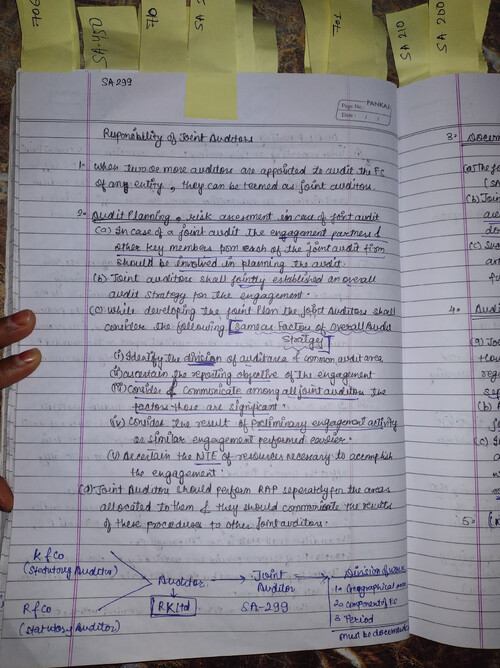 706
SA-450
70
SA
701
SA 210
SA 200
SA-299
Page No.: PANKAJ
Date: / /
Reponsibility of Joint Auditors
1- When two or more auditors are appointed to audit the FS
of any entity, they can be termed as joint auditors.
2- Audit Planning, risk assesment in case of joint audit
(a) In case of a joint audit the engagement partners &
other key members from each of the joint audit firm
should be involved in planning the audit.
(b) Joint auditors shall jointly established an overall
audit strategy for the engagement.
(c) While developing the Joint Plan the Joint Auditors shall
consider the following [Same as Factors of Overall Audit
Stratgey]
(i) Identify the division of audit area & common audit area
(ii) Ascertain the reporting objective of the engagement
(iii) Consider & Communicate among all joint auditors the
factors those are significant.
(iv) Consider the result of preliminary engagement activity
or similar engagement performed earlier.
(v) Ascertain the NTE of resources necessary to acomplish
the engagement.
(d) Joint Auditors should perform RAP seperately for the areas
allocated to them & they should communicate the results
of these procedures to other joint auditors.
K & Co
(Statutory Auditor)
R & Co
(Statutory Auditor)
Auditors
RK Ltd
Joint
Auditor
SA-299
Division of work
1. Geographical area
2. Component of FS
3. Period
must be document
3- Docum
(a) The jo
(SA
(b) Join
are
do
(c) Suc
an
fu
4. Audi
(a) Jo
(b)
(c) S
5-